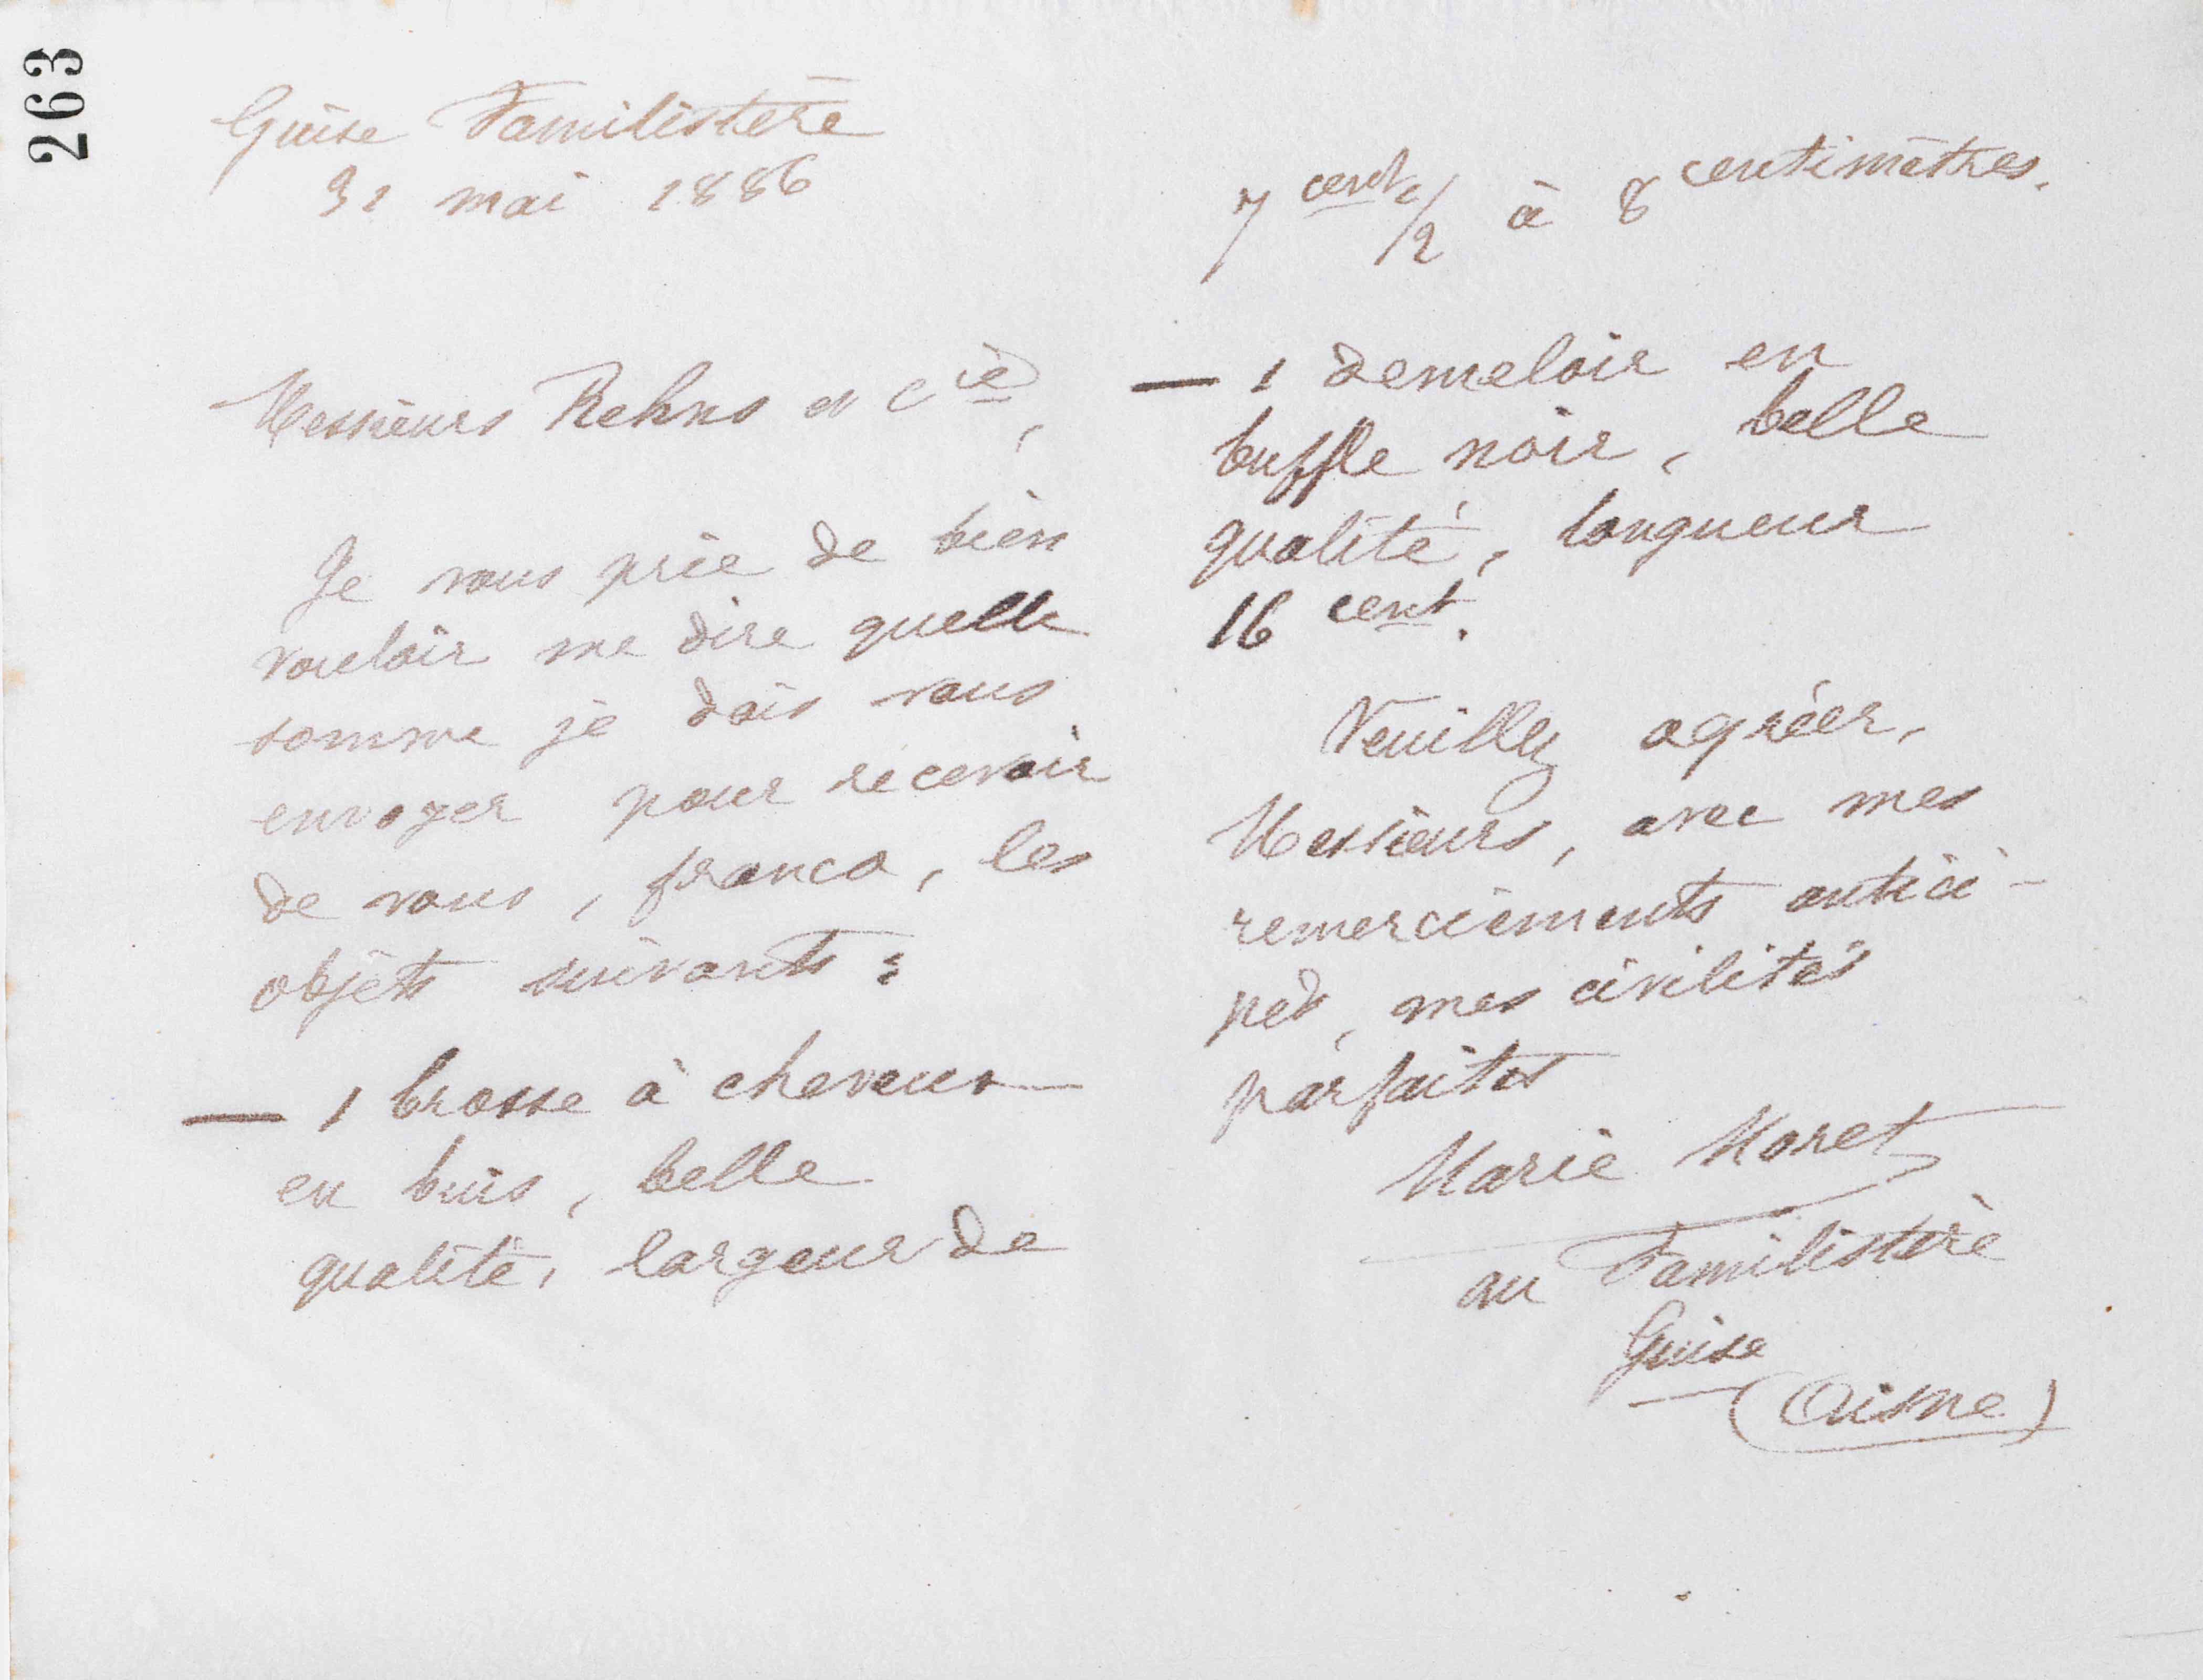 263
Guise Familistère
31 mai 1886
Messieurs Rehns et Cie,
Je vous prie de bien
vouloir me dire quelle
somme je dois vous
envoyer pour recevoir
de vous, franco, les
objets suivants :
— 1 brosse à cheveux
en buis, belle
qualité, largeur de
7 cent 1/2 à 8 centimètres.
— 1 demeloir en
buffle noir, belle
qualité, longueur
16 cent.
Veuillez agréer,
Messieurs, avec mes
remerciements antici-
pés, mes civilités
parfaites
Marie Moret
au Familistère
Guise
(Aisne)